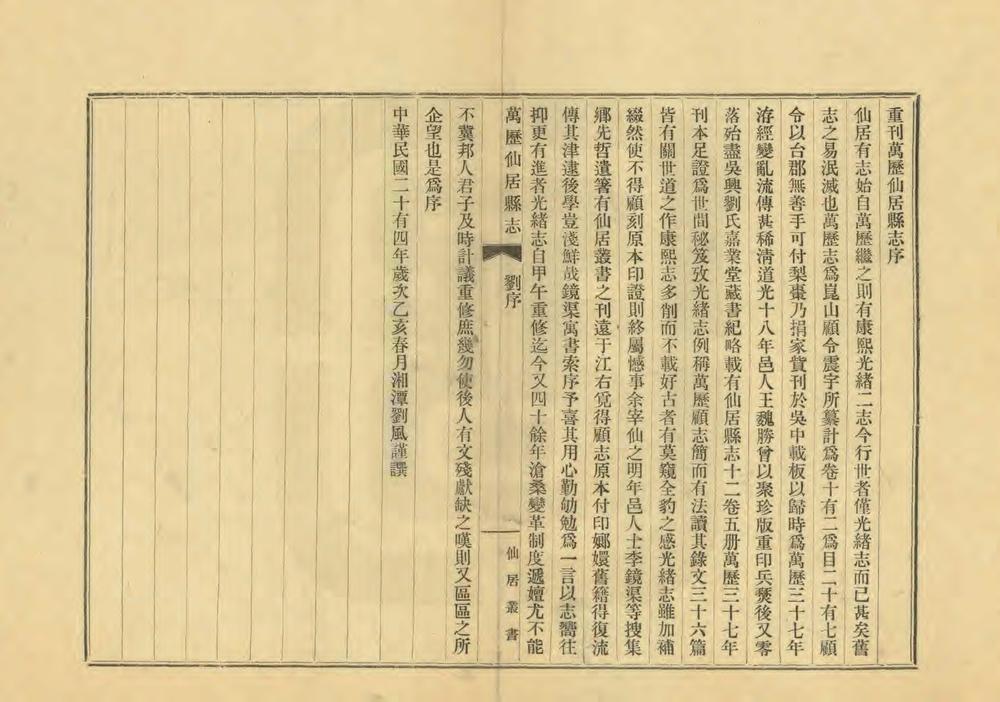 重刊萬歷仙居縣志序
仙居有志始自萬歷繼之則有康熙光緒二志今行世者僅光緒志而已甚矣舊
志之易泯滅也萬歷志爲崑山顧令震宇所纂計爲卷十有二爲目二十有七顧
令以台郡無善手可付梨棗乃捐家貲刊於吳中載板以歸時爲萬歷三十七年
洊經變亂流傳甚稀淸道光十八年邑人王魏勝曾以聚珍版重印兵燹後又零
落殆盡吳興劉氏嘉業堂藏書紀略載有仙居縣志十二卷五册萬歷三十七年
刊本足證爲世間秘笈攷光緒志例稱萬歷顧志簡而有法讀其錄文三十六篇
皆有關世道之作康熙志多削而不載好古者有莫窺全豹之感光緒志雖加補
綴然使不得顧刻原本印證則終屬憾事余宰仙之明年邑人士李鏡渠等搜集
鄉先哲遺箸有仙居叢書之刊遠于江右覓得顧志原本付印嫏嬛舊籍得復流
傳其津逮後學豈淺鮮哉鏡渠寓書索序予喜其用心勤劬勉爲一言以志嚮往
抑更有進者光緒志自甲午重修迄今又四十餘年滄桑變革制度遞嬗尤不能
萬歷仙居縣志
劉序
仙居叢書
不冀邦人君子及時計議重修庶幾勿使後人有文殘獻缺之嘆則又區區之所
企望也是爲序
中華民國二十有四年歲次乙亥春月湘潭劉風謹譔